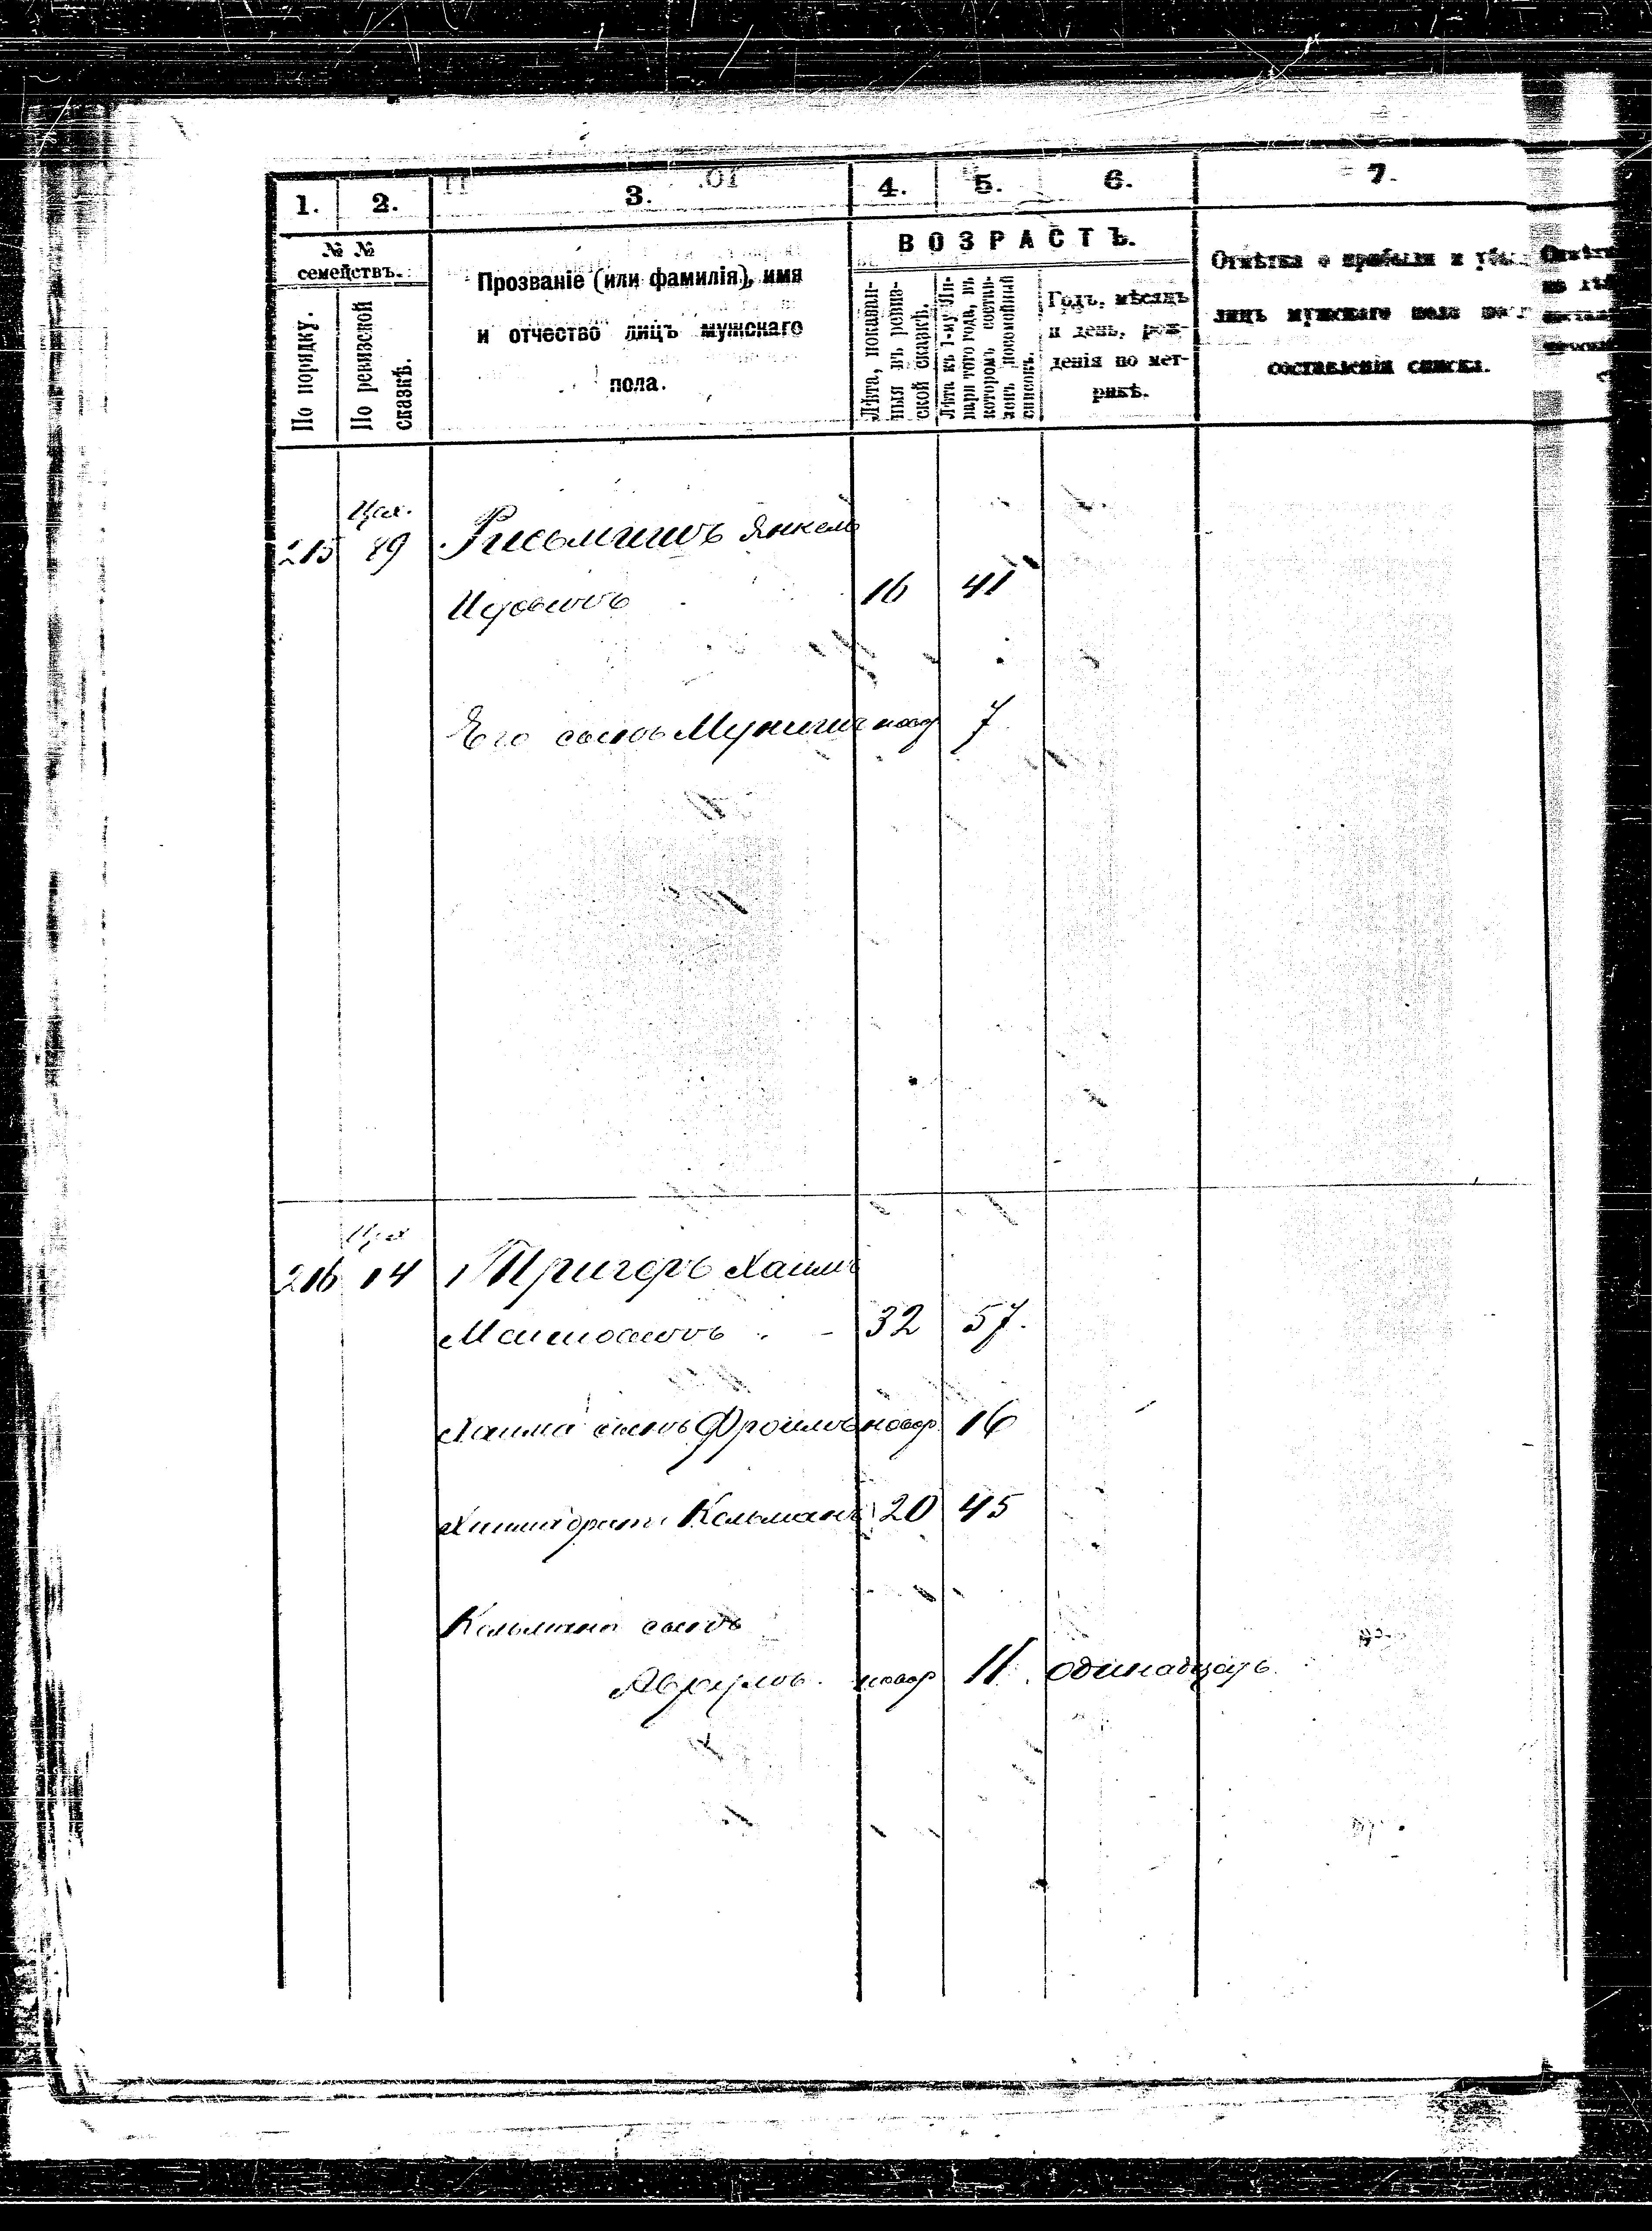 1. 2. 3. 4. 5. 6. 7.
№ №
семействъ.
По порядку.
По ревизской
сказкѣ.
Прозваніе (или фамилія), имя
и отчество лицъ мужскаго
пола.
ВОЗРАСТЪ.
Лѣта, показан-
ныя въ ревиз-
ской сказкѣ.
Лѣта къ 1-му Ян-
варя того года, въ
которомъ состав-
ленъ посемейный
списокъ.
Годъ, мѣсяцъ
и день, рож-
денія по мет-
рикѣ.
Отмѣтка о прибыли и
лицъ мужскаго пола
составленія списка.
Цех.
215 49 Янкель
16 41
Его сынъ новор 7
Цех
216 14 Пригоръ Хаимъ
32 57.
Хаима сынъ Фроимъ новор 16
Хаима братъ Кельманъ 20 45
Кельмана сынъ
Аврумъ. новор 11. одинадцать.